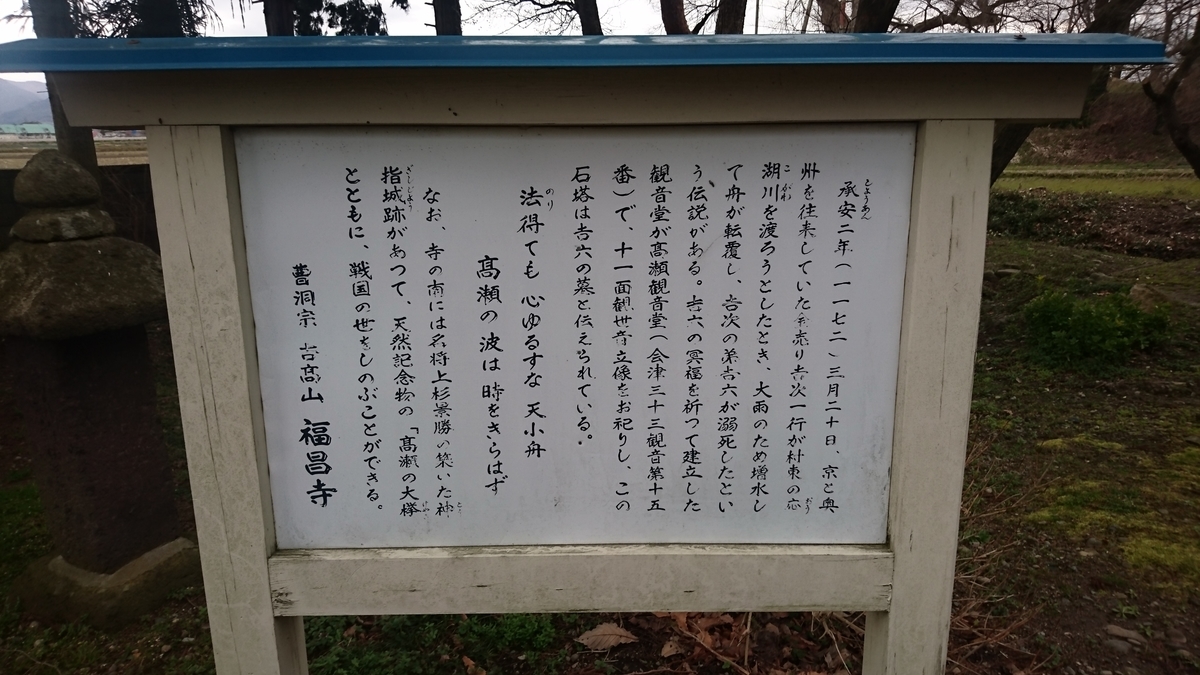 承安二年(一一七二)三月二十日、京と奥
州を往来していた金売り吉次一行が村東の応
湖川を渡ろうとしたとき、大雨のため増水し
て舟が転覆し、吉次の弟吉六が溺死したとい
う伝説がある。吉六の冥福を祈って建立した
観音堂が髙瀬観音堂(会津三十三観音第十五
番)で、十一面観世音立像をお祀りし、この
石塔は吉六の墓と伝えられている。
法得ても 心ゆるすな 天小舟
髙瀬の 波は 時をきらはず
なお、寺の南には名将上杉景勝の築いた神
指城跡があって、天然記念物の「髙瀬の大欅」
とともに、戦国の世をしのぶことができる。
曹洞宗 吉髙山 福昌寺